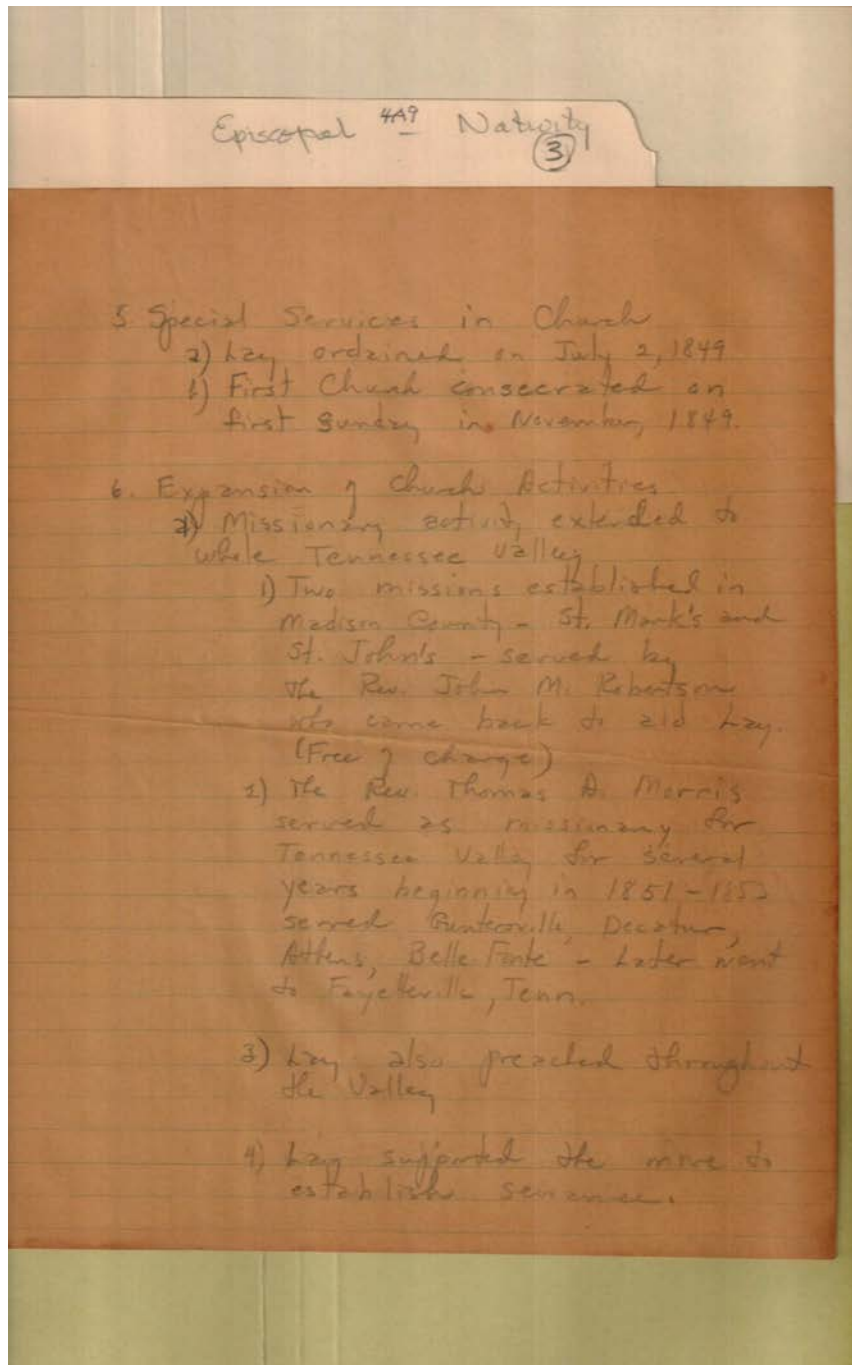 Episcopal 4A9 Nativity
3
5 Special Services in Church
a) Lay ordained on July 2, 1849
b) First Church consecrated on
first Sunday in November, 1849.
6. Expansion of Church Activities
a) Missionary activity extended to
whole Tennessee Valley
1) Two missions established in
Madison County - St. Mark's and
St. John's - served by
the Rev. John M. Robertson
who came back to aid Lay.
(Free of charge)
2) The Rev. Thomas A. Morris
served as missionary for
Tennessee Valley for several
years beginning in 1851 -
served Guntersville, Decatur,
Athens, Belle Fonte - Later went
to Fayetteville, Tenn.
3) Lay also preached throughout
the Valley
4) Lay supported the move to
establish Sewanee.